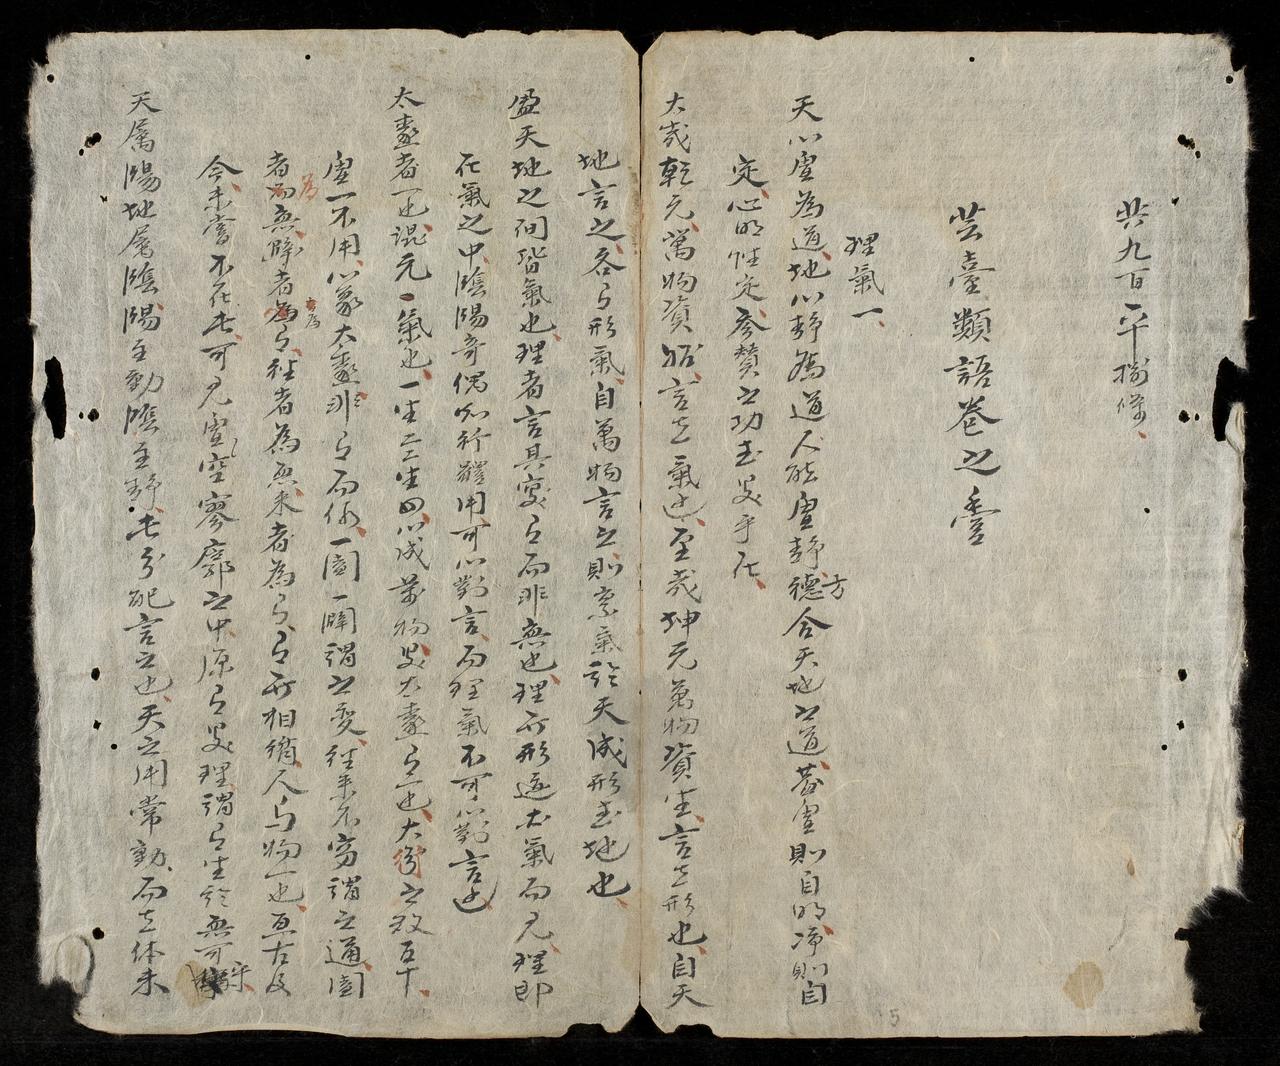 共九百平捌條
芸臺類語卷之壹
理氣一
天以虛為道地以靜為道人能虛靜方德合天地之道蓋虛則自明淨則自
定心明性定參贊之功其是乎在
大哉乾元萬物資始言其氣也至哉坤元萬物資生言其形也自天
地言之各有形氣自萬物言之則稟氣於天成形於地也
盈天地之間皆氣也理者言其寔有而非無也理所形迹在氣而見理即
在氣之中陰陽奇偶知行體用可以對言而理氣不可以對言也
太極者一也混元一氣也一生二二生四以成萬物是太極有一也大衍之数五十
虛一不用以象太極非有而何一闔一闢謂之變往來不窮謂之通闔
者為無闢者為有往者為無來者為有有無相循人与物一也亙古及
今未嘗不在此可見虛空寥廓之中原有是理謂有生於無可乎
天屬陽地屬陰陽主動陰主靜此分配言之也天之用常動而其体未